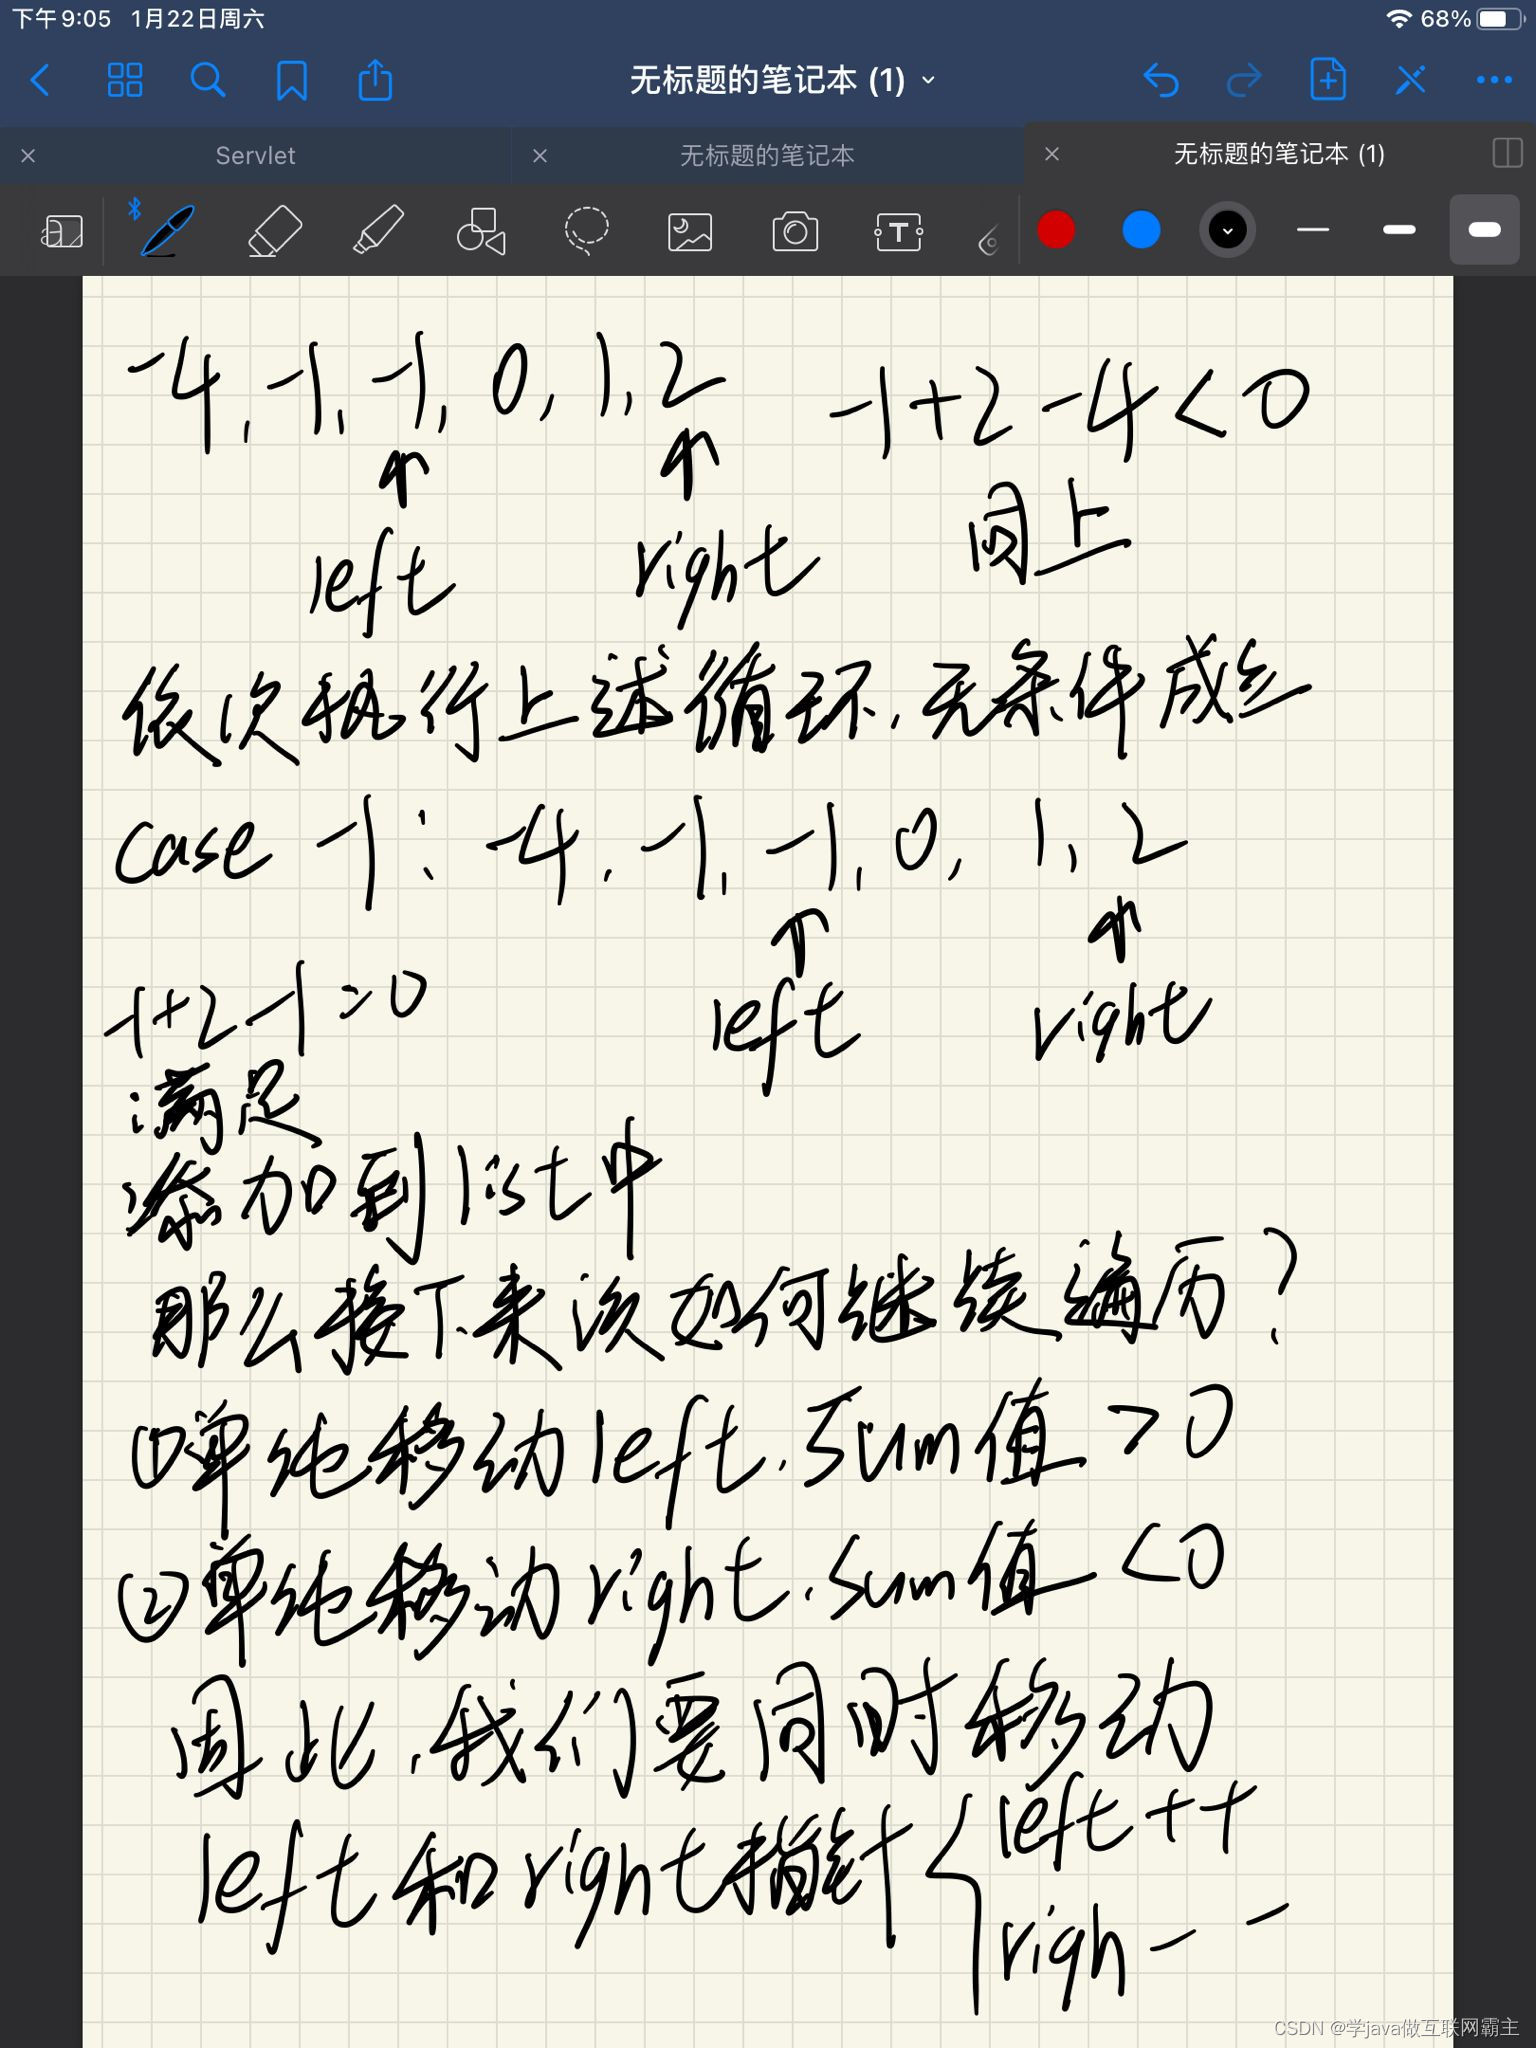 下午9:05 1月22日周六
68%
无标题的笔记本 (1)
Servlet
无标题的笔记本
无标题的笔记本 (1)
-4, -1, -1, 0, 1, 2
-1+2-4<0
left
right
同上
依次执行上述循环,无条件成立
case -1: -4, -1, -1, 0, 1, 2
-1+2-1=0
left
right
满足
添加到list中
那么接下来该如何继续遍历?
①单纯移动left,sum值>0
②单纯移动right,sum值<0
因此,我们要同时移动
left和right指针
left++
righ--
CSDN @学java做互联网霸主